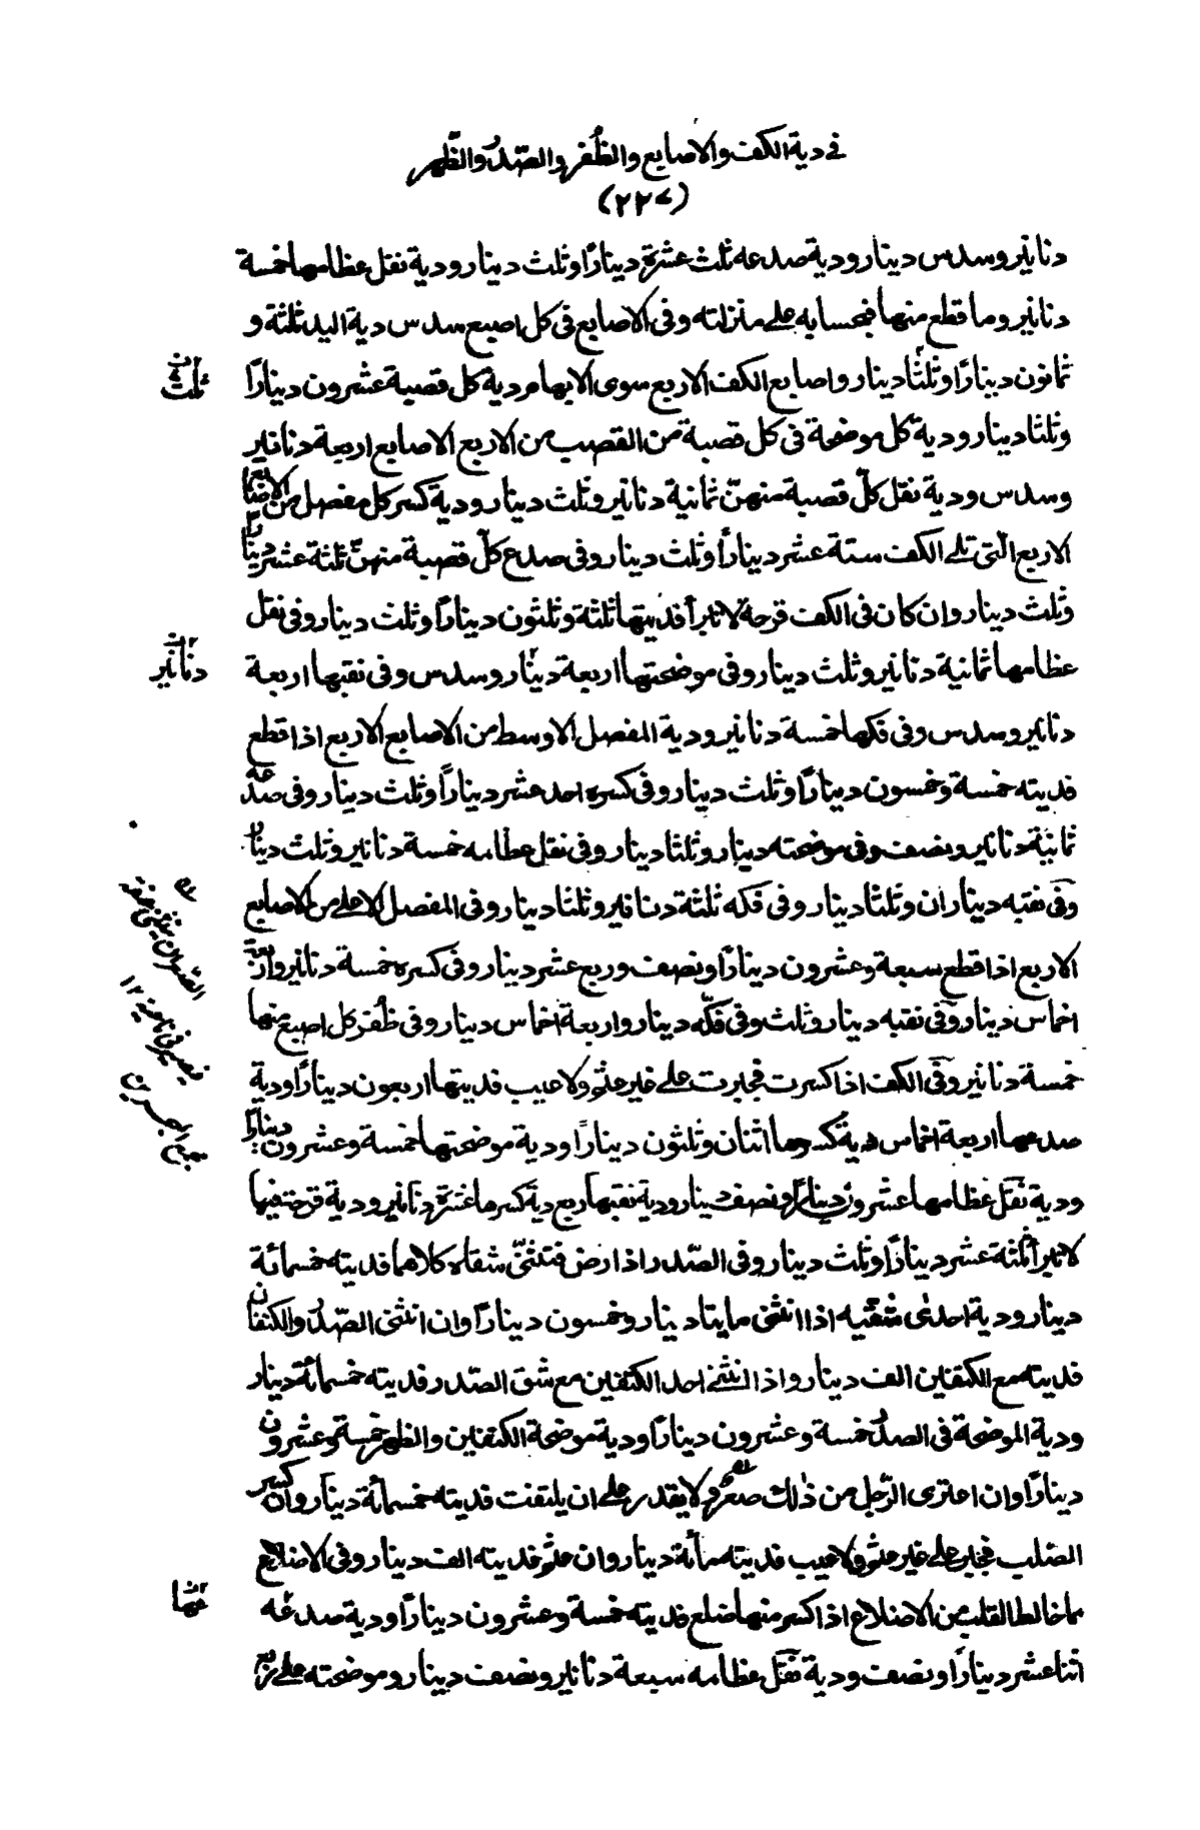 في دية الكف والاصابع والظفر والصدر والظهر
(٢٢٧)
دنانير وسدس دينار ودية صدعه ثلث عشرة دينارًا وثلث دينار ودية نقل عظامها خمسة
دنانير وما قطع منها فبحسابه على منزلته وفى الاصابع فى كل اصبع سدس دية اليد ثلثة و
ثمانون دينارًا وثلثا دينار واصابع الكف الاربع سوى الابهام دية كل قصبة عشرون دينارًا
ثلث
وثلثا دينار ودية كل موضحة فى كل قصبة من القصب من الاربع الاصابع اربعة دنانير
وسدس ودية نقل كلّ قصبة منهنّ ثمانية دنانير وثلث دينار ودية كسر كل مفصل من الاصابع
الاربع التى تلى الكف ستة عشر دينارًا وثلث دينار وفى صدع كلّ قصبة منهنّ ثلثة عشر دينارًا
وثلث دينار وان كان فى الكف قرحة لا تبرأ فديتها ثلثة وثلثون دينارًا وثلث دينار وفى نقل
عظامها ثمانية دنانير وثلث دينار وفى موضحتها اربعة دينار وسدس وفى نقبها اربعة
دنانير
دنانير وسدس وفى فكها خمسة دنانير ودية المفصل الاوسط من الاصابع الاربع اذا قطع
فديته خمسة وخمسون دينارًا وثلث دينار وفى كسره احد عشر دينارًا وثلث دينار وفى صدعه
ثمانية دنانير ونصف وفى موضحته دينار وثلثا دينار وفى نقل عظامه خمسة دنانير وثلث دينار
وفى نقبه ديناران وثلثا دينار وفى فكه ثلثة دنانير وثلثا دينار وفى المفصل الاعلى من الاصابع
الاربع اذا قطع سبعة وعشرون دينارًا ونصف وربع عشر دينار وفى كسره خمسة دنانير واربعة
اخماس دينار وفى نقبه دينار وثلث وفى فكّه دينار واربعة اخماس دينار وفى ظفر كل اصبع منها
خمسة دنانير وفى الكف اذا كسرت فجبرت على غير عثم ولا عيب فديتها اربعون دينارًا ودية
صدعها اربعة اخماس دية كسرها اثنان وثلثون دينارًا ودية موضحتها خمسة وعشرون دينارًا
ودية نقل عظامها عشرون دينارًا ونصف دينار ودية نقبها ربع دية كسرها عشرة دنانير ودية قرحة فيها
لا تبرأ ثلثة عشر دينارًا وثلث دينار وفى الصّدر اذا رض فتثنّى شقاه كلاهما فديته خمسمائة
دينار ودية احدى شقيه اذا انثنى مايتا دينار وخمسون دينارًا وان انثنى الصّدر والكتفان
فديته مع الكتفين الف دينار واذا انثنى احد الكتفين مع شق الصّدر فديته خمسمائة دينار
ودية الموضحة فى الصدر خمسة وعشرون دينارًا ودية موضحة الكتفين والظهر خمسة وعشرون
دينارًا وان اعترى الرّجل من ذلك صعر ولا يقدر على ان يلتفت فديته خمسمائة دينار وان كسر
الصّلب فجبر على غير عثم ولا عيب فديته مأئة دينار وان عثم فديته الف دينار وفى الاضلاع
مما خالط القلب من الاضلاع اذا كسر منها ضلع فديته خمسة وعشرون دينارًا ودية صدعه
اثنا عشر دينارًا ونصف ودية نقل عظامه سبعة دنانير ونصف دينار وموضحته على ربع